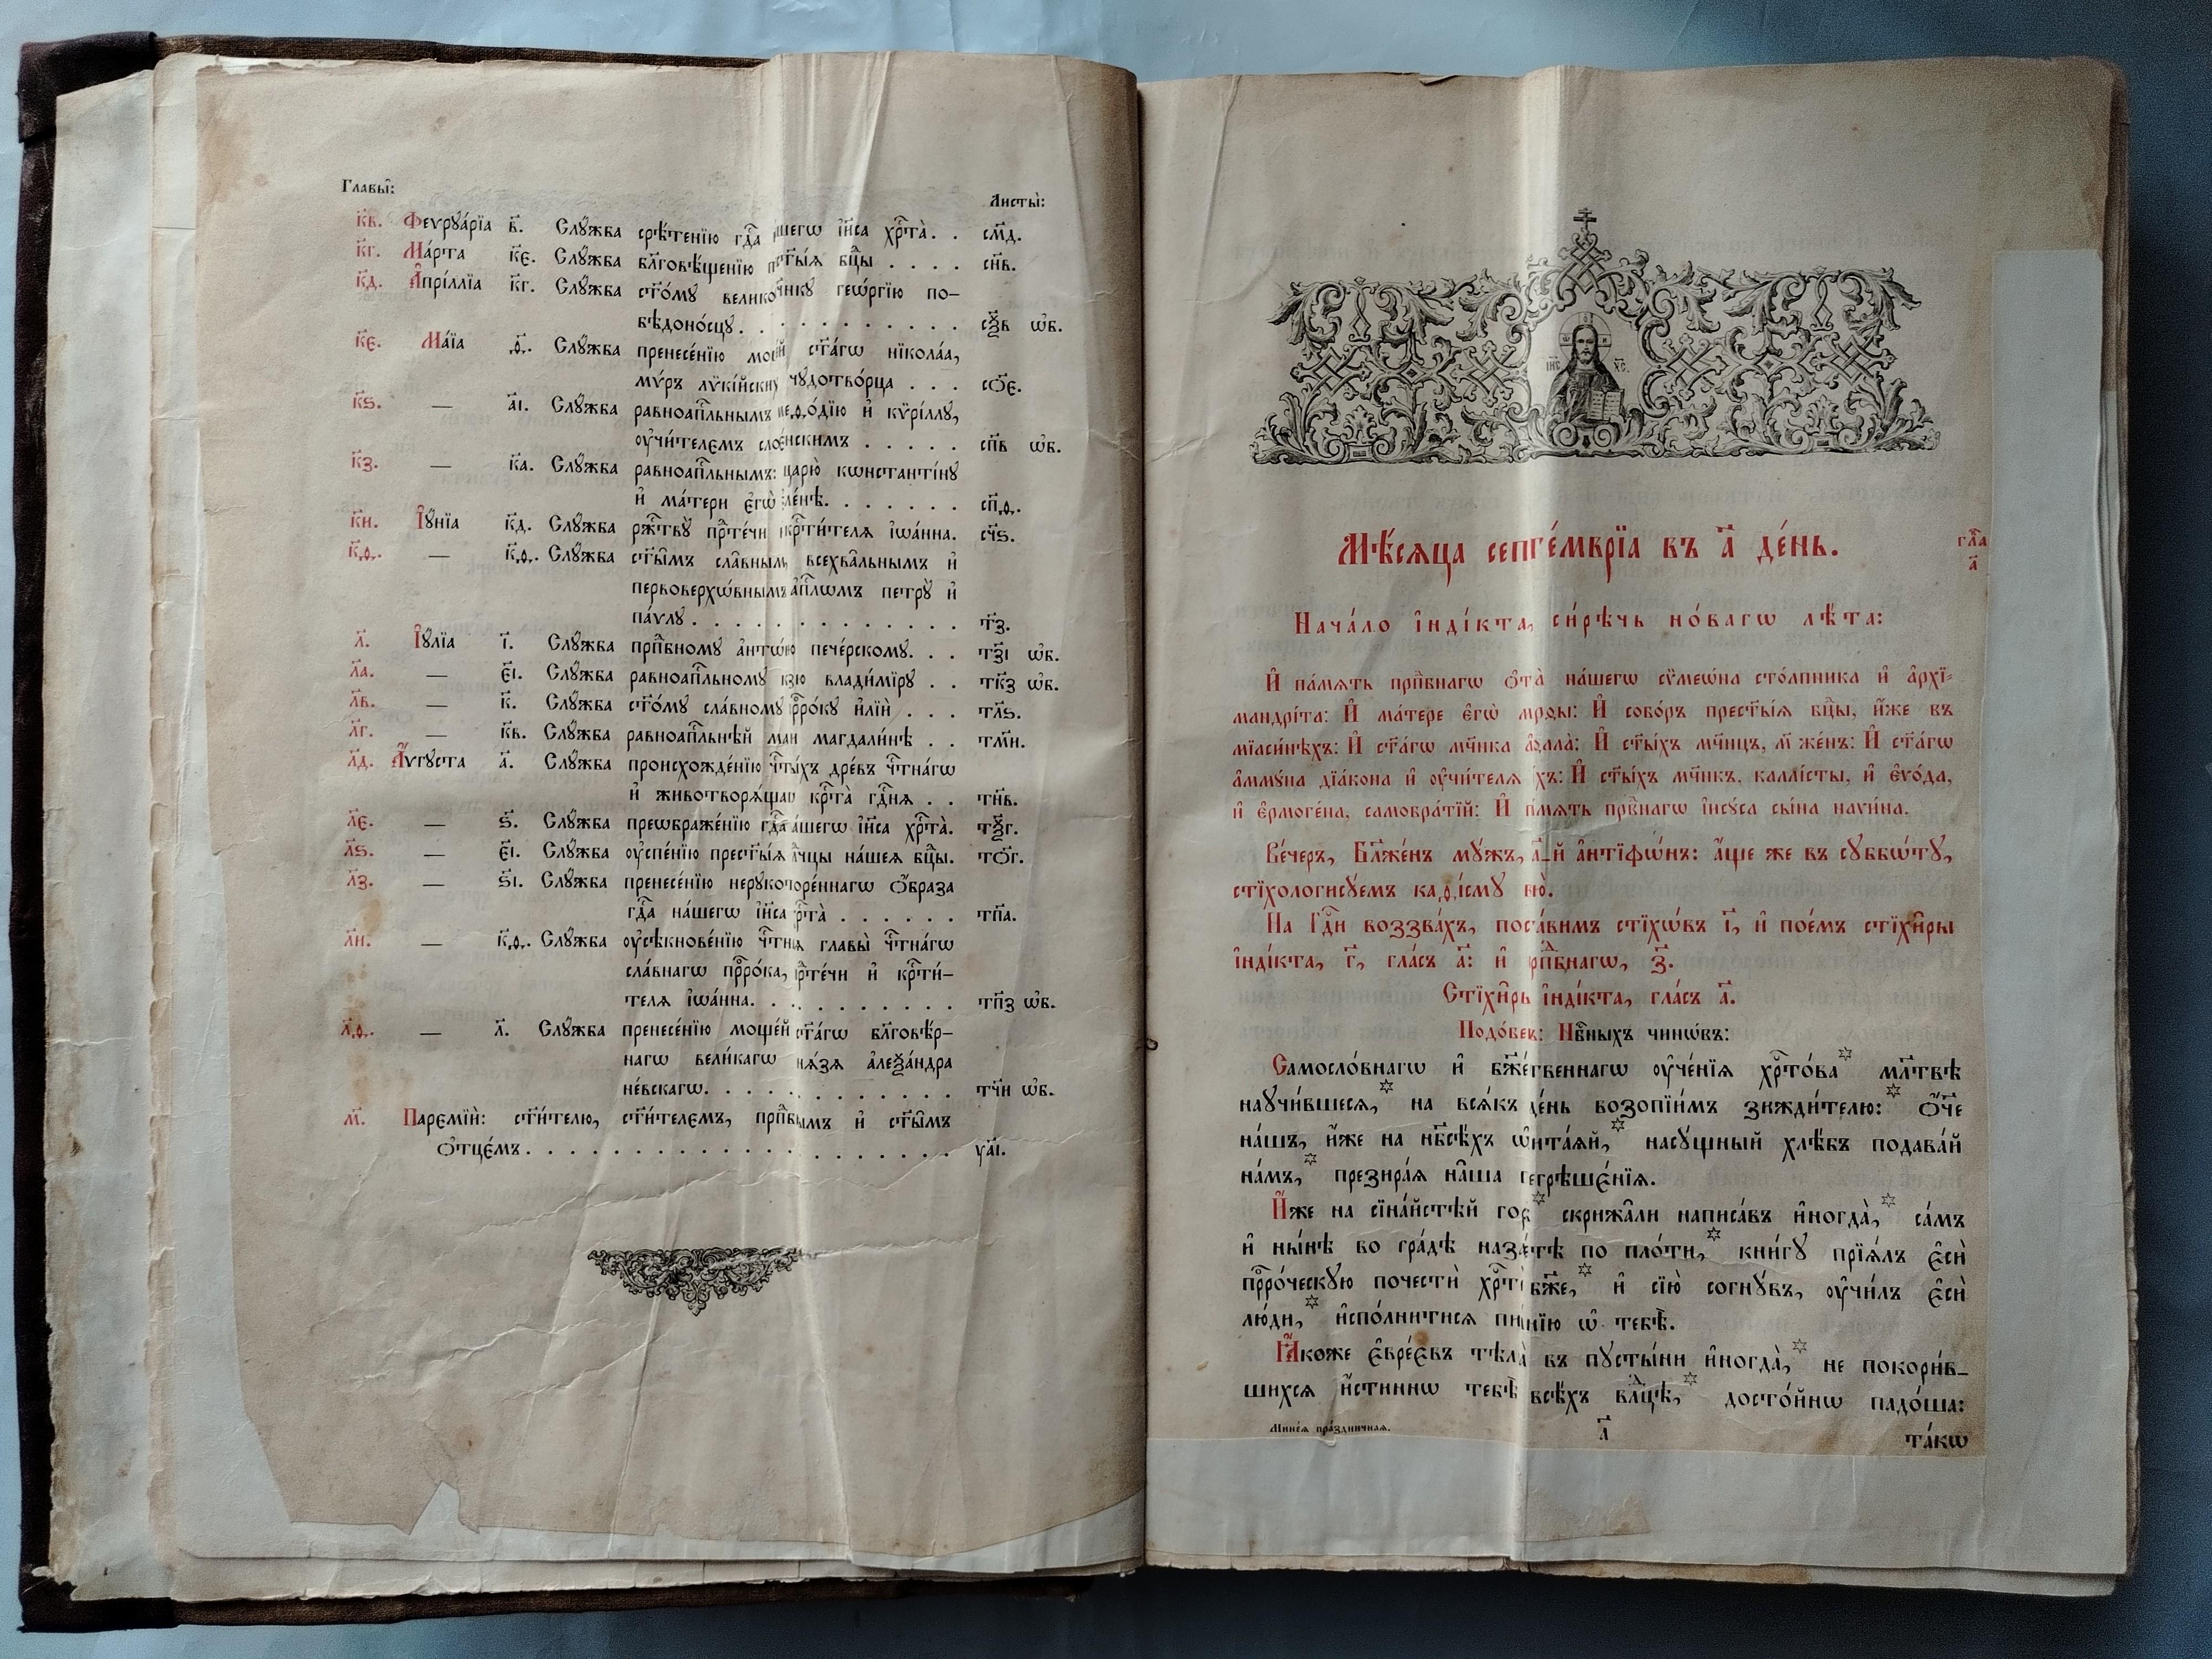 Главы̑: Листы̀:
к҃в. Феврꙋа́рїа в҃. Слꙋ́жба срѣ́тенїю гдⷭ҇а шегѡ і҆и҃са хрⷭ҇та̀. . см҃д.
к҃г. Ма́рта к҃є. Слꙋ́жба бл҃говѣ́щенїю ст҃ы́ѧ бцⷣы . . . . сн҃в.
к҃д. А҆прі́ллїа к҃г. Слꙋ́жба ст҃о́мꙋ геѡ́ргїю по-
бѣдоно́сцꙋ. . . . . . . . . . . сѯ҃в ѡ҆б.
к҃є. Ма́їа ѳ҃. Слꙋ́жба пренесе́нїю ст҃а́гѡ нїкола́а,
мѵ́ръ чꙋдотво́рца . . . со҃є.
к҃ѕ. — а҃і. Слꙋ́жба равноап҃льнымъ и҆ кѷрі́ллꙋ,
ᲂу҆чи́телємъ . . . . . сп҃в ѡ҆б.
к҃з. — к҃а. Слꙋ́жба равноап҃льнымъ: царю̀ кѡнстанті́нꙋ
и҆ ма́тери є҆гѡ̀ . . . . . . . сп҃ѳ.
к҃и. І҆ꙋ́нїа к҃д. Слꙋ́жба ржⷭ҇твꙋ̀ прⷣте́чи крⷭ҇ти́телѧ і҆ѡа́нна. сч҃ѕ.
к҃ѳ. — к҃ѳ. Слꙋ́жба ст҃ы̑мъ сла̑внымъ всехва̑льнымъ и҆
первоверхѡ́внымъ а҆пⷭ҇лѡмъ петрꙋ̀ и҆
па́ѵлꙋ . . . . . . . . . . . . . т҃з.
л҃. І҆ꙋ́лїа і҃. Слꙋ́жба прпⷣбномꙋ пече́рскомꙋ. . . тз҃і ѡ҆б.
л҃а. — є҃і. Слꙋ́жба равноап҃льномꙋ влади́мїрꙋ . . тк҃з ѡ҆б.
л҃в. — к҃. Слꙋ́жба ст҃о́мꙋ сла́вномꙋ прⷪ҇ро́кꙋ и҆лїѝ . . . тл҃ѕ.
л҃г. — к҃в. Слꙋ́жба равноап҃льнѣй магдали́нѣ . . тм҃и.
л҃д. А҆́ѵгꙋста а҃. Слꙋ́жба происхожде́нїю чⷭ҇тны́хъ дре́въ чⷭ҇тна́гѡ
и҆ крⷭ҇та̀ гдⷭ҇нѧ . . тн҃в.
л҃є. — ѕ҃. Слꙋ́жба преѡбраже́нїю гдⷭ҇а шегѡ і҆и҃са хрⷭ҇та̀. тѯ҃г.
л҃ѕ. — є҃і. Слꙋ́жба ᲂу҆спе́нїю прест҃ы́ѧ на́шеѧ бцⷣы. то҃г.
л҃з. — ѕ҃і. Слꙋ́жба пренесе́нїю ѻ҆́браза
гдⷭ҇а на́шегѡ і҆и҃са хрⷭ҇та̀ . . . . . . тп҃а.
л҃и. — к҃ѳ. Слꙋ́жба ᲂу҆сѣкнове́нїю главы̀ чⷭ҇тна́гѡ
сла́внагѡ прⷪ҇ро́ка, прⷣте́чи и҆ крⷭ҇ти́-
телѧ і҆ѡа́нна. . . . . . . . . . тп҃з ѡ҆б.
л҃ѳ. — л҃. Слꙋ́жба пренесе́нїю моще́й ст҃а́гѡ бл҃говѣ́р-
нагѡ вели́кагѡ кнѧ́зѧ а҆леѯа́ндра
не́вскагѡ. . . . . . . . . . . . тч҃и ѡ҆б.
м҃. Паремїи̑: ст҃и́телю, ст҃и́телємъ, и҆ ст҃ы̑мъ
ѻ҆тцє́мъ . . . . . . . . . . . . . . . . . . . . уа҃і.
Мѣ́сѧца септе́мврїа въ а҃ де́нь.
гла҃
а҃
Нача́ло і҆нді́кта, си́рѣчь но́вагѡ лѣ́та:
И҆ па́мѧть прпⷣбнагѡ ѻ҆ц҃а̀ на́шегѡ сѷмеѡ́на сто́лпника и҆ а҆рхї-
мандрі́та: И҆ ма́тере є҆гѡ̀ И҆ собо́ръ прест҃ы́ѧ бцⷣы, и҆́же въ
мїаси́нѣхъ: И҆ ст҃а́гѡ мч҃нка И҆ ст҃ы́хъ мч҃нцъ, м҃ же́нъ: И҆ ст҃а́гѡ
а҆ммꙋ́на дїа́кона и҆ ᲂу҆чи́телѧ и҆́хъ: И҆ ст҃ы́хъ мч҃нкъ, каллі́сты, и҆ є҆ѵо́да,
и҆ є҆рмоге́на, самобра́тїй: И҆ па́мѧть првⷣнагѡ і҆исꙋ́са сы́на наѵи́на.
Ве́черъ, Бл҃же́нъ мꙋ́жъ, а҃-й а҆нтїфѡ́нъ: а҆́ще же въ сꙋббѡ́тꙋ,
стїхологисꙋ́емъ каѳі́смꙋ всю̀.
На Гдⷭ҇и воззва́хъ, поста́вимъ стїхѡ́въ і҃, и҆ пое́мъ стїхи̑ры
і҆нді́кта, г҃, гла́съ а҃: и҆ прпⷣбнагѡ, з҃.
Стїхи̑ры і҆нді́кта, гла́съ а҃.
Подо́бен: Нбⷭ҇ныхъ чинѡ́въ:
Самосло́внагѡ и҆ бж҃е́ственнагѡ ᲂу҆че́нїѧ хрⷭ҇то́ва* мл҃твѣ
наꙋчи́вшесѧ,* на всѧ́къ де́нь возопїи́мъ зижди́телю:* ѻ҆́ч҃е
на́шъ, и҆́же на нб҃сѣ́хъ ѡ҆бита́ѧй,* насꙋ́щный хлѣ́бъ подава́й
на́мъ,* презира́ѧ на̑ша согрѣшє́нїѧ.
И҆́же на сїна́йстѣй горѣ̀* скрижа̑ли написа́въ и҆ногда̀,* са́мъ
и҆ ны́нѣ во гра́дѣ назаре́тѣ по пло́ти,* кни́гꙋ прїѧ́лъ є҆сѝ
прⷪ҇ро́ческꙋю почестѝ хрⷭ҇тѐ бж҃е,* и҆ сїю̀ согнꙋ́въ, ᲂу҆чи́лъ є҆сѝ
лю́ди,* и҆спо́лнитисѧ писа́нїю ѡ҆ тебѣ̀.
Ꙗ҆́коже є҆вре́євъ тѣлеса̀ въ пꙋсты́ни и҆ногда̀,* не покори́в-
шихсѧ и҆́стиннѡ тебѣ̀ всѣ́хъ влⷣцѣ,* досто́йнѡ падо́ша:
Мине́ѧ пра́здничнаѧ. а҃ та́кѡ